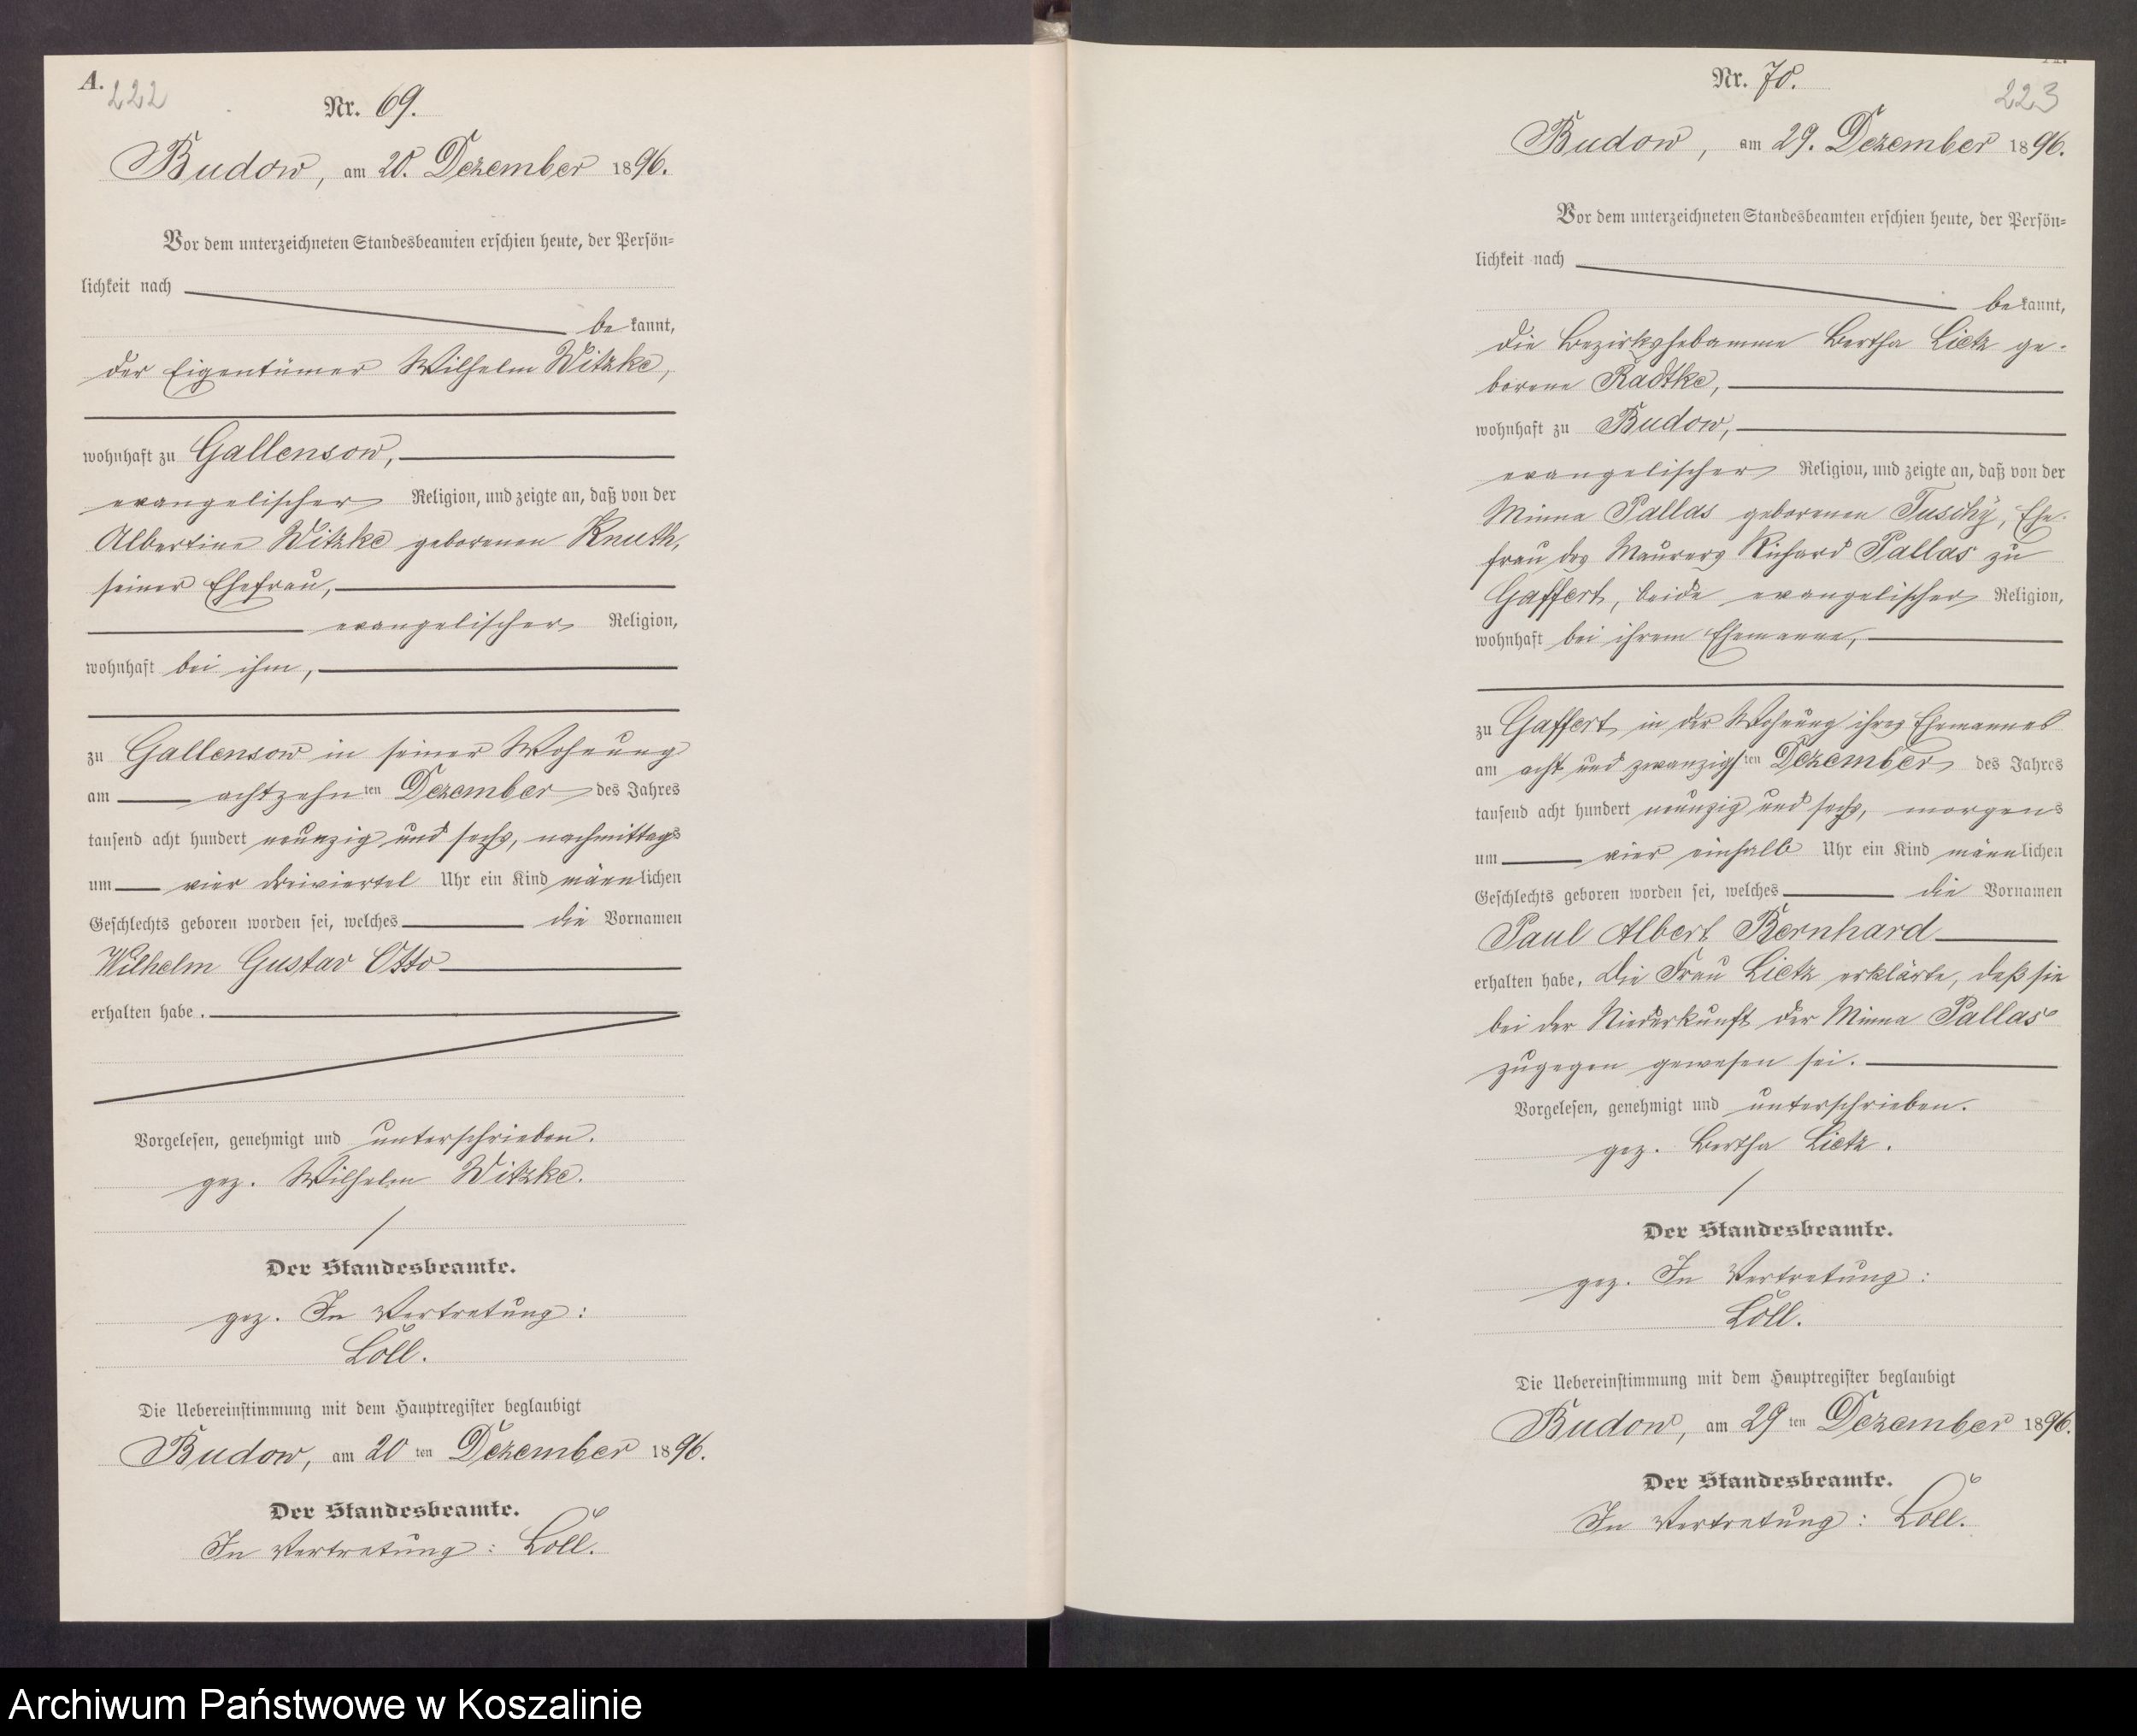 A.
222
Nr. 69.
Budow, am 20. Dezember 1896.
Vor dem unterzeichneten Standesbeamten erschien heute, der Persön-
lichkeit nach
be kannt,
der Eigentümer Wilhelm Witzke,
wohnhaft zu Gallensow,
evangelischer Religion, und zeigte an, daß von der
Albertine Witzke geborenen Knuth,
seiner Ehefrau,
evangelischer Religion,
wohnhaft bei ihm,
zu Gallensow in seiner Wohnung
am achtzehn ten Dezember des Jahres
tausend acht hundert neunzig und sechs, nachmittags
um vier dreiviertel Uhr ein Kind männlichen
Geschlechts geboren worden sei, welches die Vornamen
Wilhelm Gustav Otto
erhalten habe.
Vorgelesen, genehmigt und unterschrieben.
gez. Wilhelm Witzke.
Der Standesbeamte.
gez. In Vertretung:
Löll.
Die Uebereinstimmung mit dem Hauptregister beglaubigt
Budow, am 20 ten Dezember 1896.
Der Standesbeamte.
In Vertretung: Löll.
A.
223
Nr. 70.
Budow, am 29. Dezember 1896.
Vor dem unterzeichneten Standesbeamten erschien heute, der Persön-
lichkeit nach
be kannt,
die Bezirkshebamme Bertha Lietz ge-
borene Radtke,
wohnhaft zu Budow,
evangelischer Religion, und zeigte an, daß von der
Minna Pallas geborenen Tuschy, Ehe-
frau des Maurers Richard Pallas zu
Gaffert, beide evangelischer Religion,
wohnhaft bei ihrem Ehemanne,
zu Gaffert in der Wohnung ihres Ehemannes
am acht und zwanzigs ten Dezember des Jahres
tausend acht hundert neunzig und sechs, morgens
um vier einhalb Uhr ein Kind männlichen
Geschlechts geboren worden sei, welches die Vornamen
Paul Albert Bernhard
erhalten habe. Die Frau Lietz erklärte, daß sie
bei der Niederkunft der Minna Pallas
zugegen gewesen sei.
Vorgelesen, genehmigt und unterschrieben.
gez. Bertha Lietz.
Der Standesbeamte.
gez. In Vertretung:
Löll.
Die Uebereinstimmung mit dem Hauptregister beglaubigt
Budow, am 29 ten Dezember 1896.
Der Standesbeamte.
In Vertretung: Löll.
Archiwum Państwowe w Koszalinie